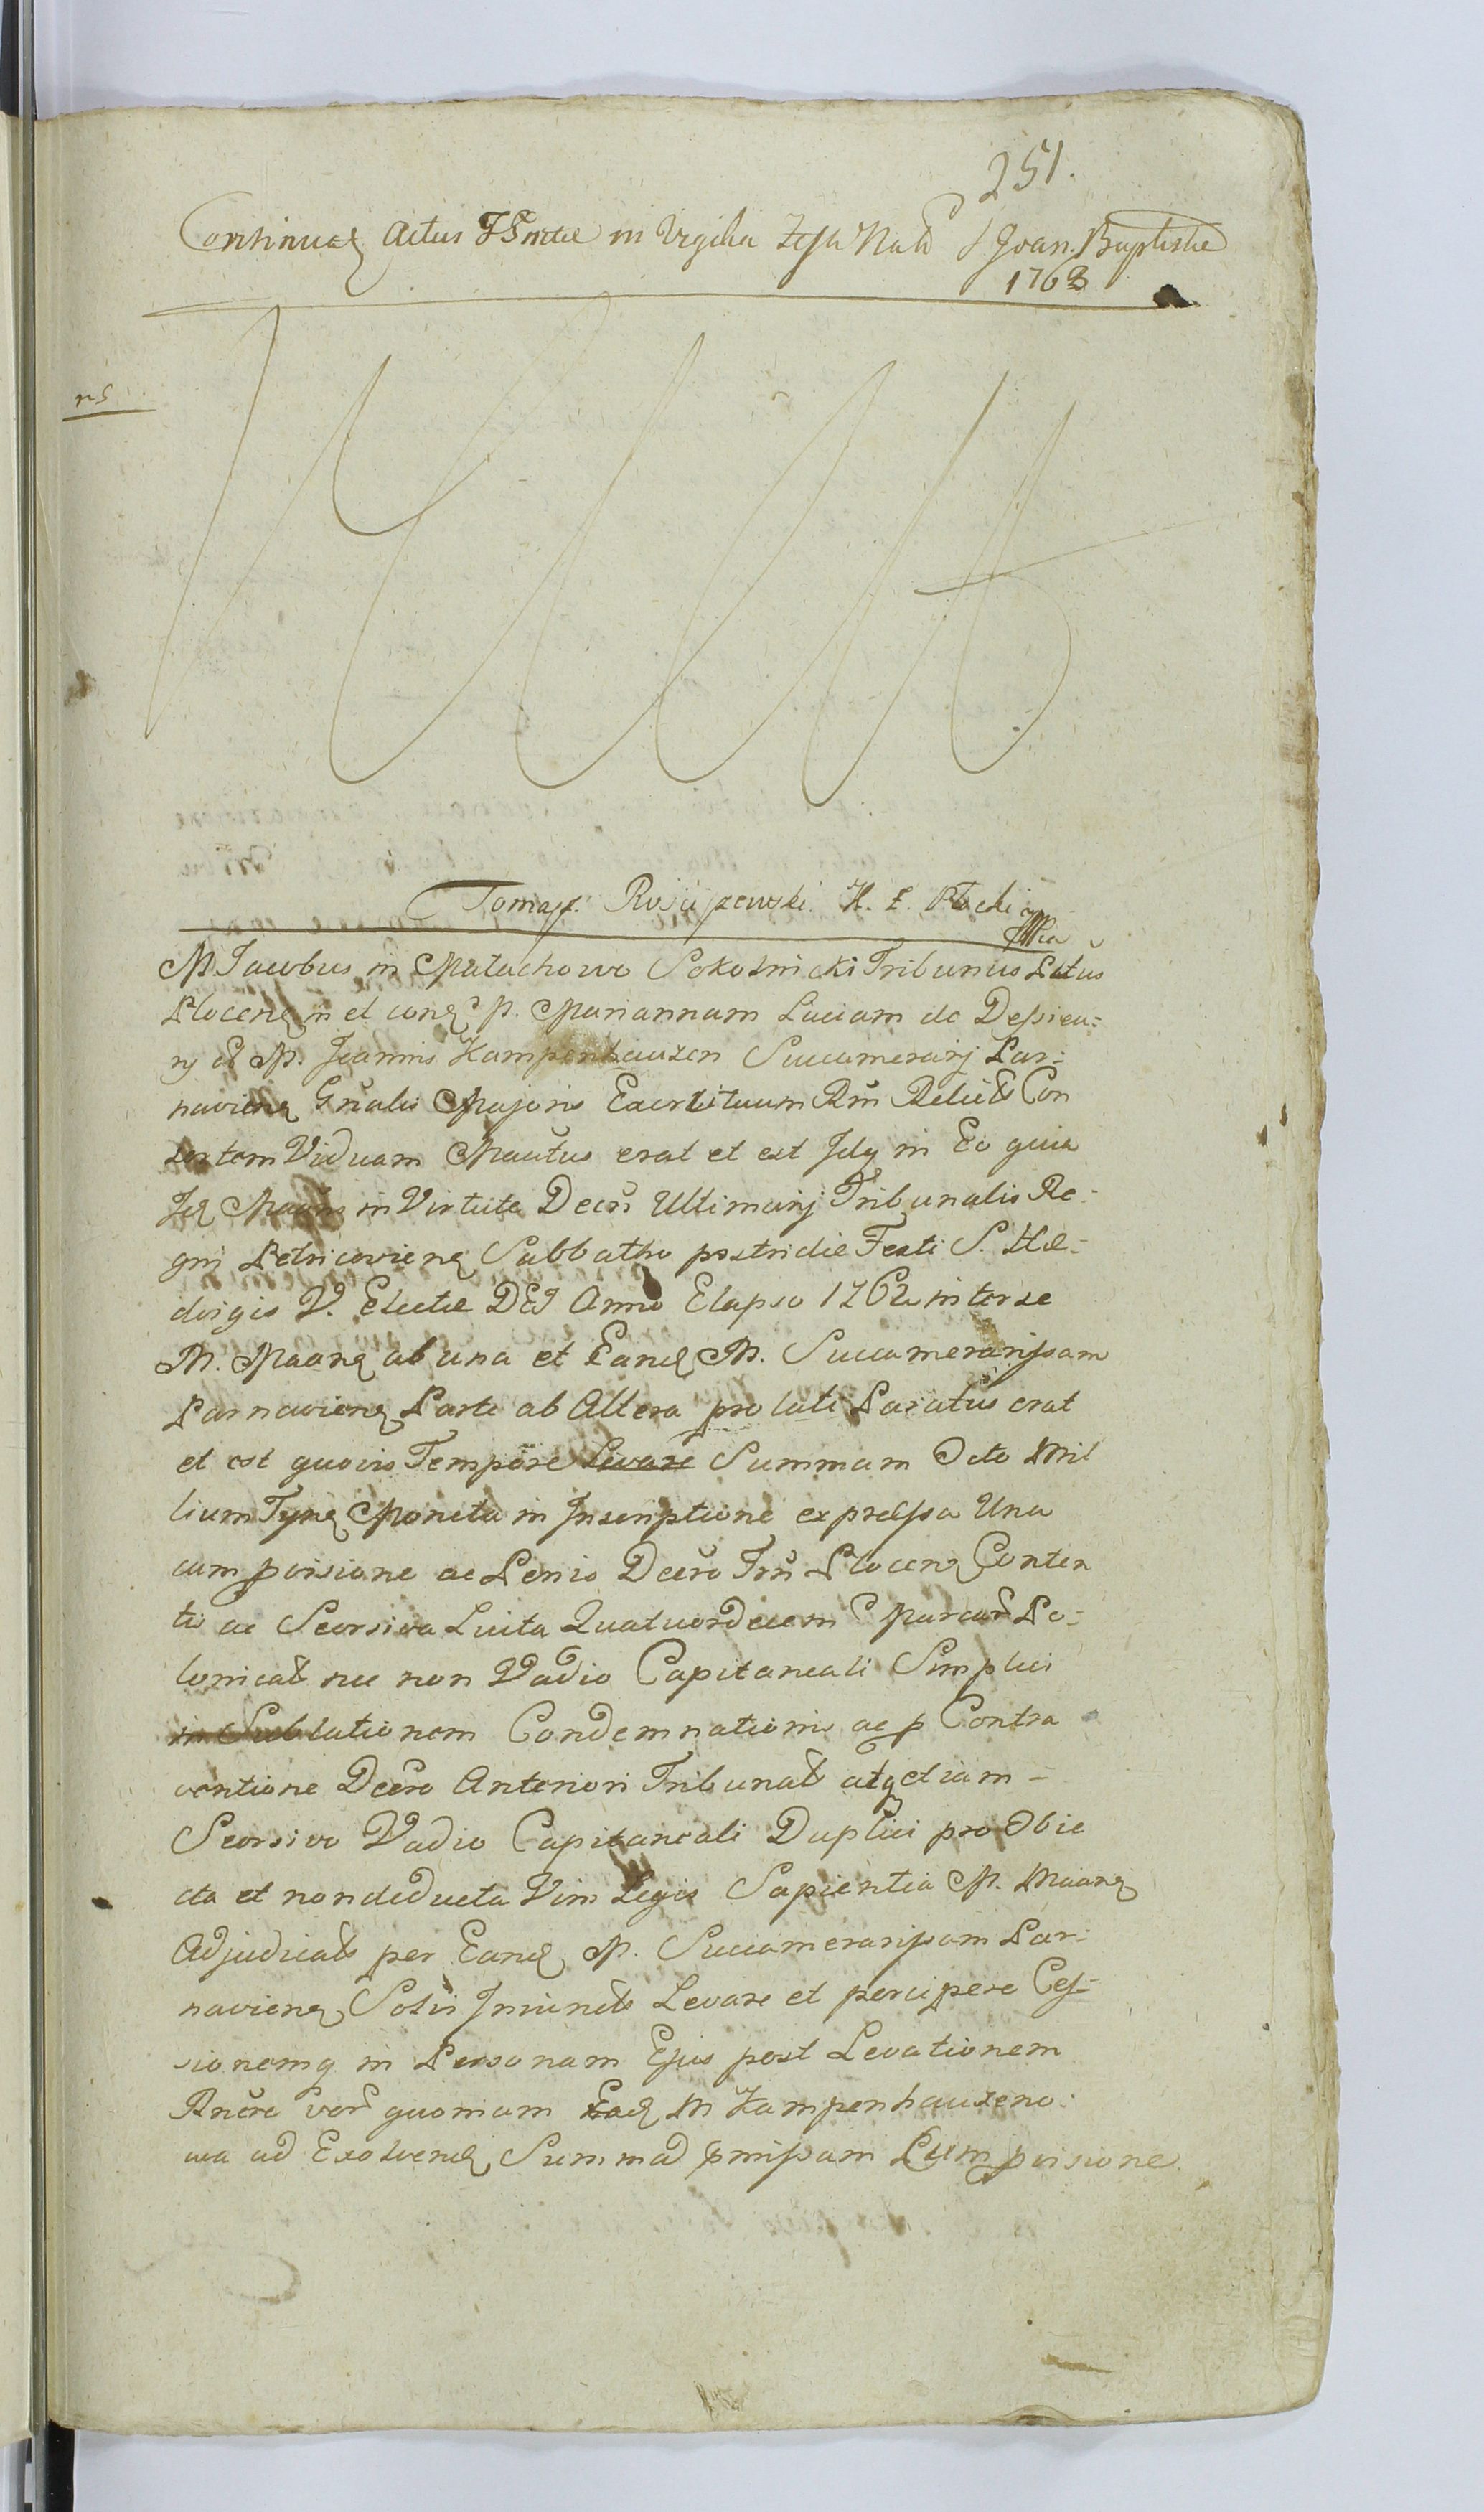 251.
Continuaǫ Actus FSnctæ in Vigilia Festi Natis S Joan. Baptistæ
1763
ns
Tomasz Rościszewski K. Z. Płocki mpria
M Jacobus in Małachowo Sokolnicki Tribunus Lctus
Plocenę in et conę M. Mariannam Luciam de Dessieu=
nÿ et M. Joannis Kampenhauzen Succamerarij Par=
navienę Gnalis Majoris Exercituum Rni Relictã Con
sortem Viduam Mautus erat et est Idq in Eo quia
Idę Maatus in Virtute Decri Ultimarij Tribunalis Re=
gni Petricovienę Sabbatho postridie Festi S. Hæ=
dvigis V. Electæ DEI Anno Elapso 1762 inter se
M. Maanę ab una et Eandę M. Succamerarissam
Parnavienę Parte ab Altera pro lati Paratus erat
et est quovis Tempore Levare Summam Octo Mil
lium Tynę Moneta in Inscriptione expressa Una
cum pvisione ac Penis Decro Trii Plocenę Conten
tis ac Seorsiva Luita Quatuordecem Marcarũ Po=
lonicalũ nec non Vadio Capitaneali Simplici
in Sublationem Condemnationis ac p Contra
ventione Decro Anteriori Tribunalũ atq etiam =
Seorsivo Vadio Capitaneali Duplici pro Obie
cta et non deducta Vim Legis Sapientia M. Maanę
Adjudicatis per Eandę M. Succamerarissam Par=
navienę Solvi Iniunctis Levare et percipere Ces=
sionemq in Personam Ejus post Levationem
Rncre verũ quoniam Eadę M Kampenhauzeno=
wa ad Exolvendę Summã pmissam Cum pvisione